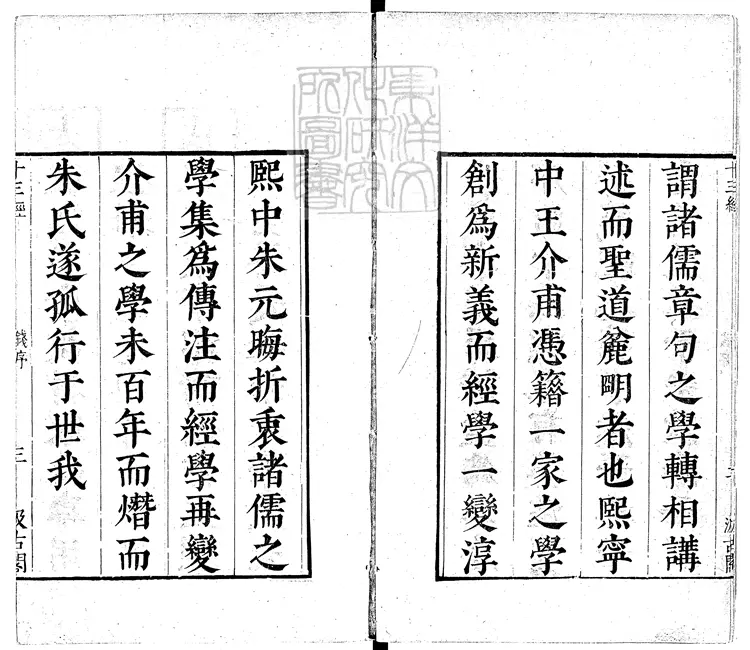 謂諸儒章句之學轉相講
述而聖道麄明者也熙寧
中王介甫憑籍一家之學
創爲新義而經學一變淳
熙中朱元晦折衷諸儒之
學集爲傳注而經學再變
介甫之學未百年而熸而
朱氏遂孤行于世我
十三經
錢序
三
汲古閣
東洋文
化研究
所圖書